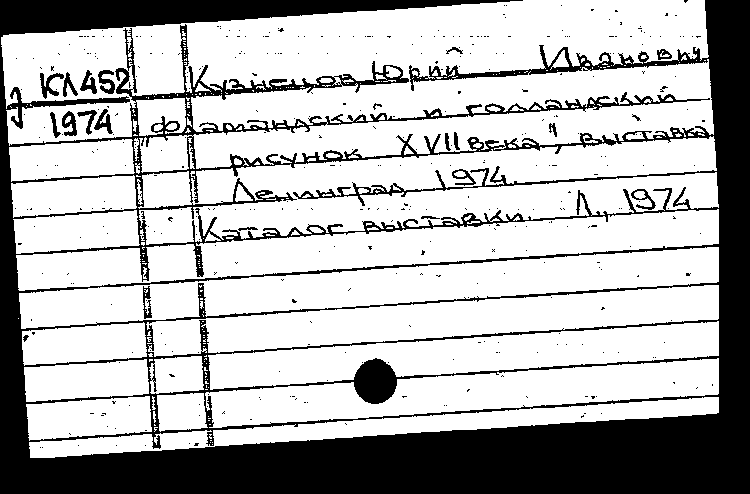 КЛ452 Кузнецов, Юрий Иванович
1974 „Фламандский и голландский
рисунок XVII века", выставка
Ленинград 1974.
Каталог выставки. Л., 1974